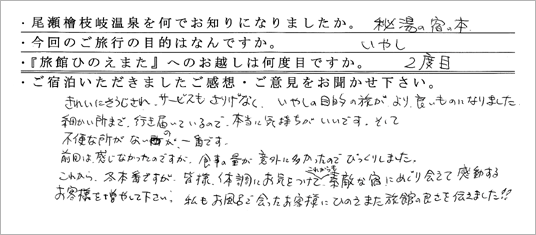 ・尾瀬檜枝岐温泉を何でお知りになりましたか。 秘湯の宿の本
・今回のご旅行の目的はなんですか。 いやし
・『旅館ひのえまた』へのお越しは何度目ですか。 2度目
・ご宿泊いただきましたご感想・ご意見をお聞かせ下さい。
きれいにそうじされ、サービスもさりげなく、いやしの目的の旅がより良いものになりました
細かい所まで、行き届いているので、本当に気持ちがいいです。そして
不便な所がないのが一番です。
前回は感じなかったのですが、食事の量が意外に多かったのでびっくりしました。
これから、冬本番ですが、皆様、体調にお気をつけて、これからも素敵な宿にめぐり会えて感動する
お客様を増やして下さい。私もお風呂で会ったお客様にひのえまた旅館の良さを伝えました!!